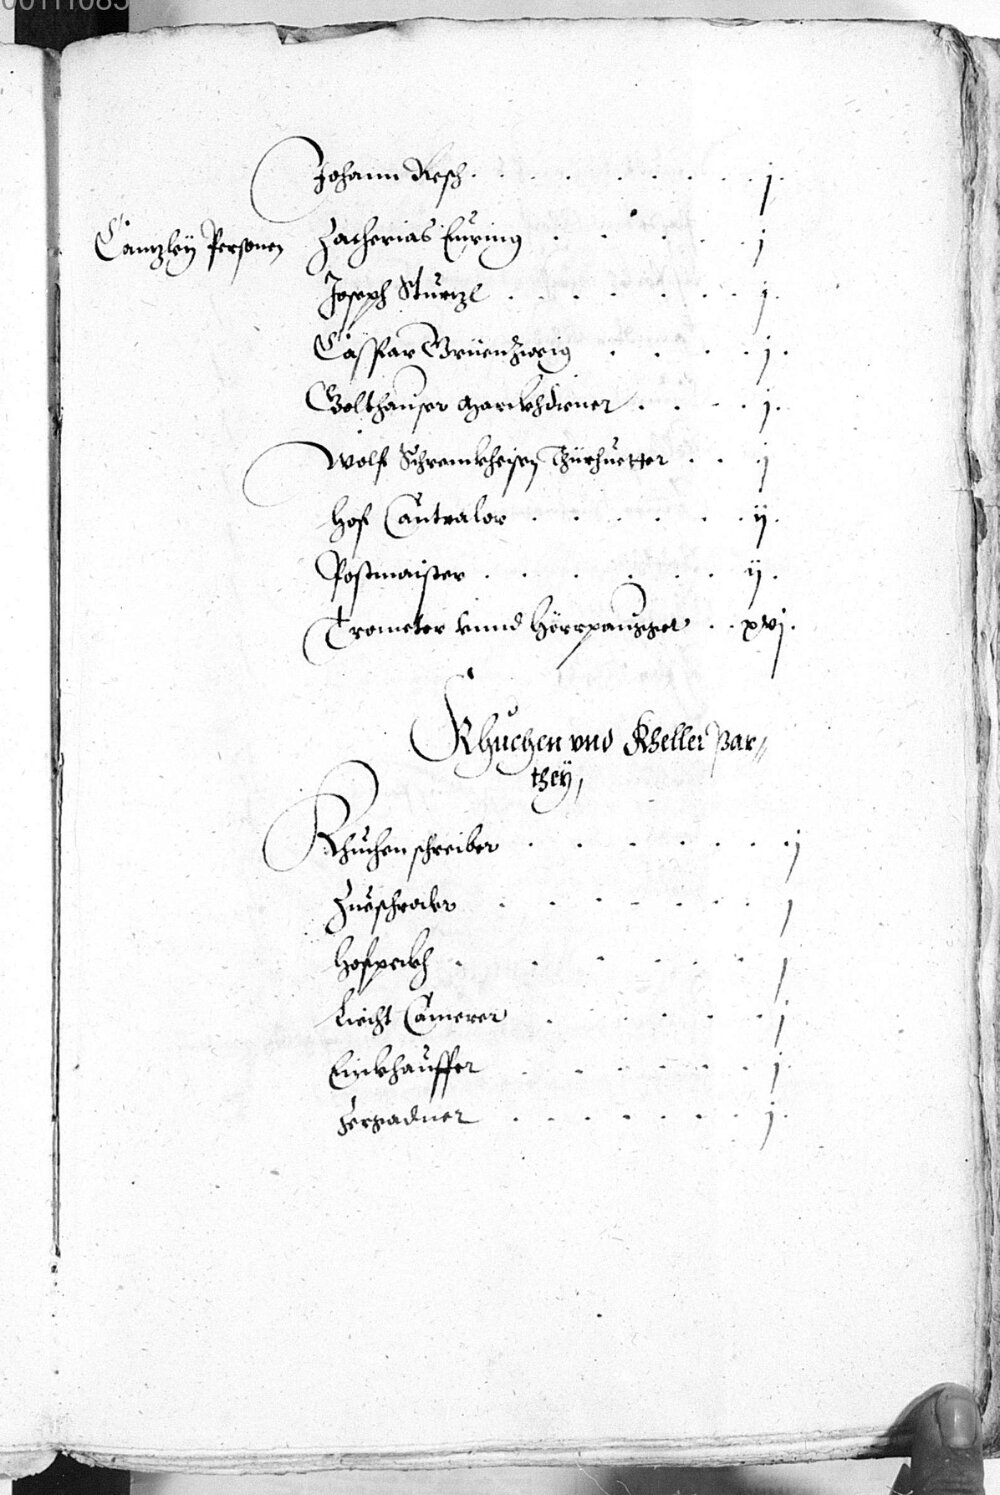 00111085
Johann Resch . . . . . . . . j.
Cantzley Personen Zacherias Euring . . . . . j
Joseph Stürtzl . . . . . . . j.
Caspar Grüenzweig . . . . j.
Balthauser Marckhdiener . . . . j.
Wolf Schrenckheisen Thürhuetter . . . j
Hof Cantralor . . . . . ij.
Postmaister . . . . . . ij.
Trometer vnnd Hörrpaugger . . xvj.
Khuchen vnd Kheller Par¬
they,
Khuchenschreiber . . . . . . . j
Zueschroder . . . . . . . j
Hofpeckh . . . . . j
Liecht Camerer . . . . . . j
Einkhauffer . . . . . . j
Zergadner . . . . . . j.